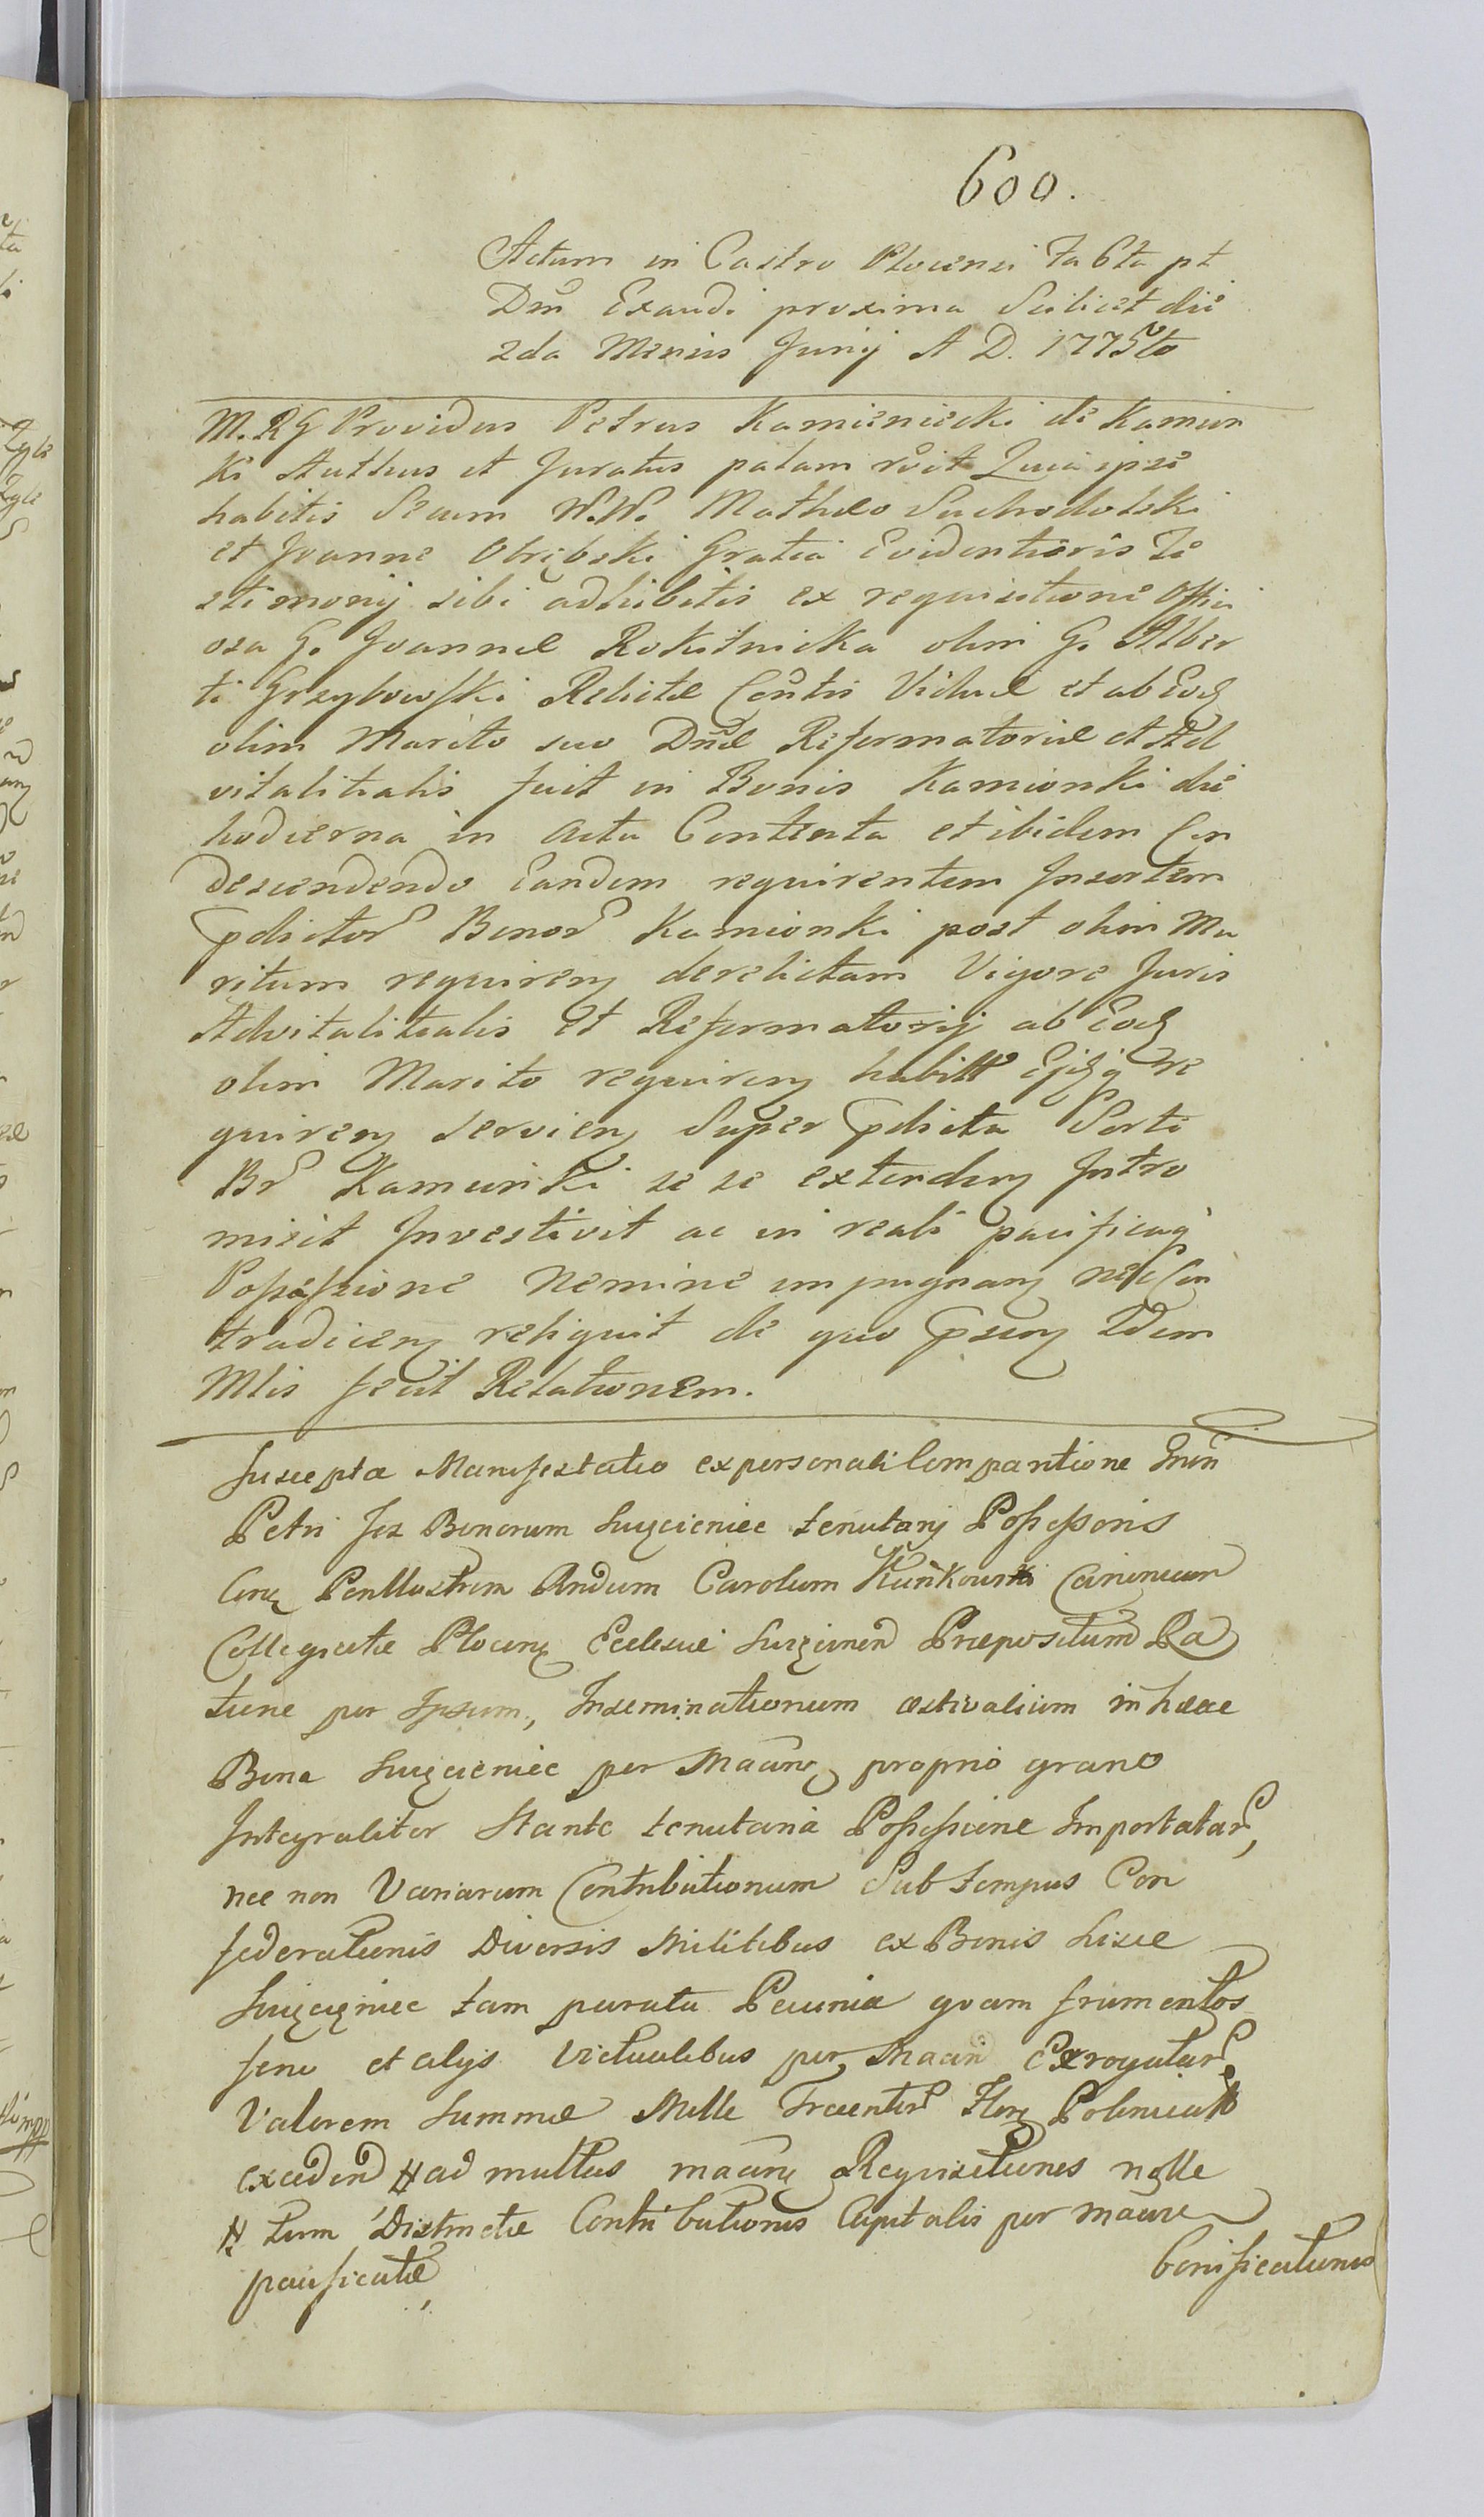 600.
Actum in Castro Plocensi Fa 6ta pt
Dnm Exaudi proxima Scilicet die
2da Mensis Junij A D. 1775to
M. RG Providus Petrus Kamieniecki de Kamion
ki Authus et Juratus palam rõit Quia ipse
habitis Secum N.N. Matheo Suchodolski
et Joanne Obrębski Gratia Evidentioris Te
stimonij sibi adhibitis ex requisitione Offici
osa G. Joannæ Rokitnicka olim G. Alber
ti Grzybowski Relictæ Consortis Viduæ et ab Eod
olim Marito suo Dnæ Reformatoriæ et Ad
vitalitialis fuit in Bonis Kamionki die
hodierna in Actu Contenta et ibidem Con
descendendo Eandem requirentem In sortem
pdictor Bonor Kamionki post olim Ma
ritum requiren derelictam Vigore Juris
Advitalitialis et Reformatorij ab Eod
olim Marito requiren habitt Ejusq re
quiren servien Super pdicta Sorte
Br Kamionki se se extenden Intro
misit Investivit ac in reali pacificaq
Possessione Nemine impugnan nec Con
tradicen reliquit de quo psens Idem
Mlis fecit Relationem.
Suscepta Manifestatio ex personali Comparitione Gnen
Petri Jez Bonorum Swięcieniec tenutarij Possessoris
Cona Penllustrem Rndum Carolum Kunkowski Canonicum
Collegiatæ Plocens Ecclesiæ Swięcinen Præpositum Ra
tione per Ipsum, Inseminationum æstivalium in hæc
Bona Swięcieniec per Maãne proprio grano
Integraliter Stante tenutaria Possessione Importatar,
nec non Variarum Contributionum Sub tempus Con
federationis Diversis Militibus ex Bonis hisce
Swięcięniec tam parata Pecunia quam frumentos
feno et alijs Victualibus per Maan Exrogatar
Valorem Summæ Mille Trecentor Flor Polonicalt
exceden # ad multas maãne Requisitiones nolle
# tum Distinctæ Contributionis Capitalis per maãne
pacificatæ,
bonificationis